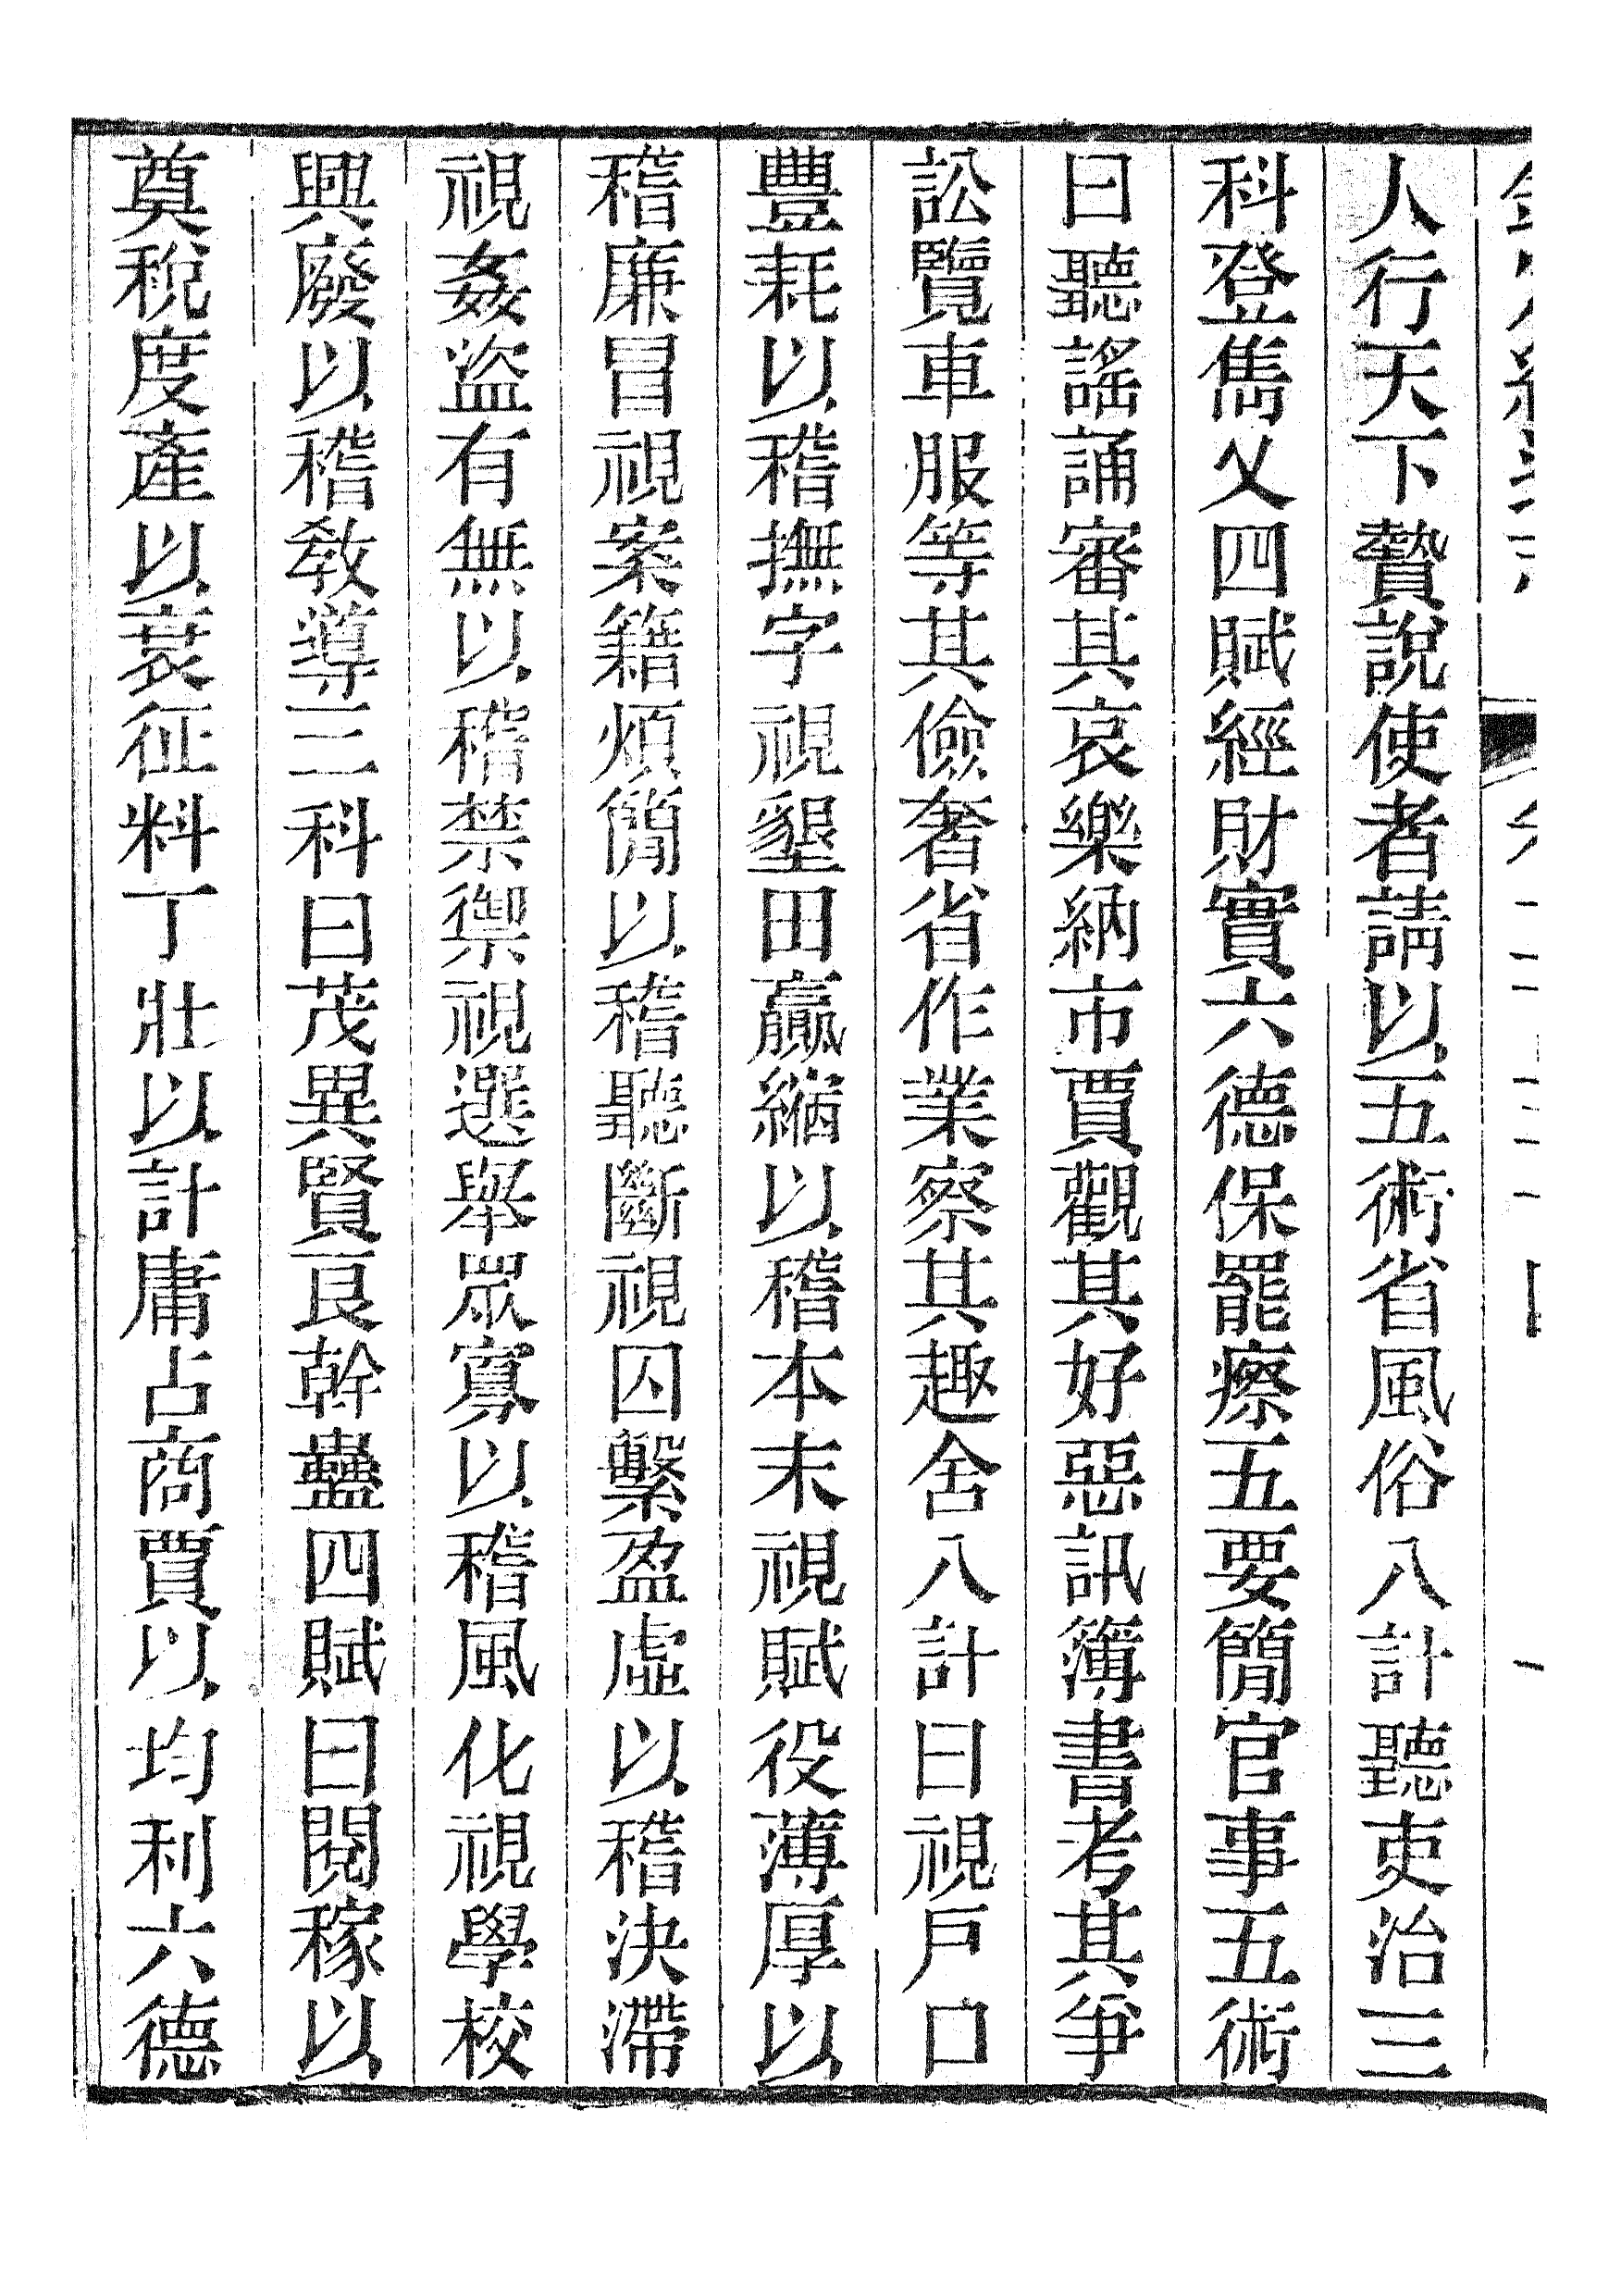 人行天下贄說使者請以五術省風俗八計聽吏治三
科登雋乂四賦經財實六德保罷瘵五要簡官事五術
曰聽謠誦審其哀樂納市賈觀其好惡訊簿書考其爭
訟覽車服等其儉奢省作業察其趣舍八計曰視戶口
豐耗以稽撫字視墾田贏縮以稽本末視賦役薄厚以
稽廉冒視案籍煩簡以稽聽斷視囚繫盈虛以稽決滯
視姦盜有無以稽禁禦視選舉眾寡以稽風化視學校
興廢以稽敎導三科曰茂異賢良幹蠱四賦曰閱稼以
奠稅度產以衰征料丁壯以計庸占商賈以均利六德